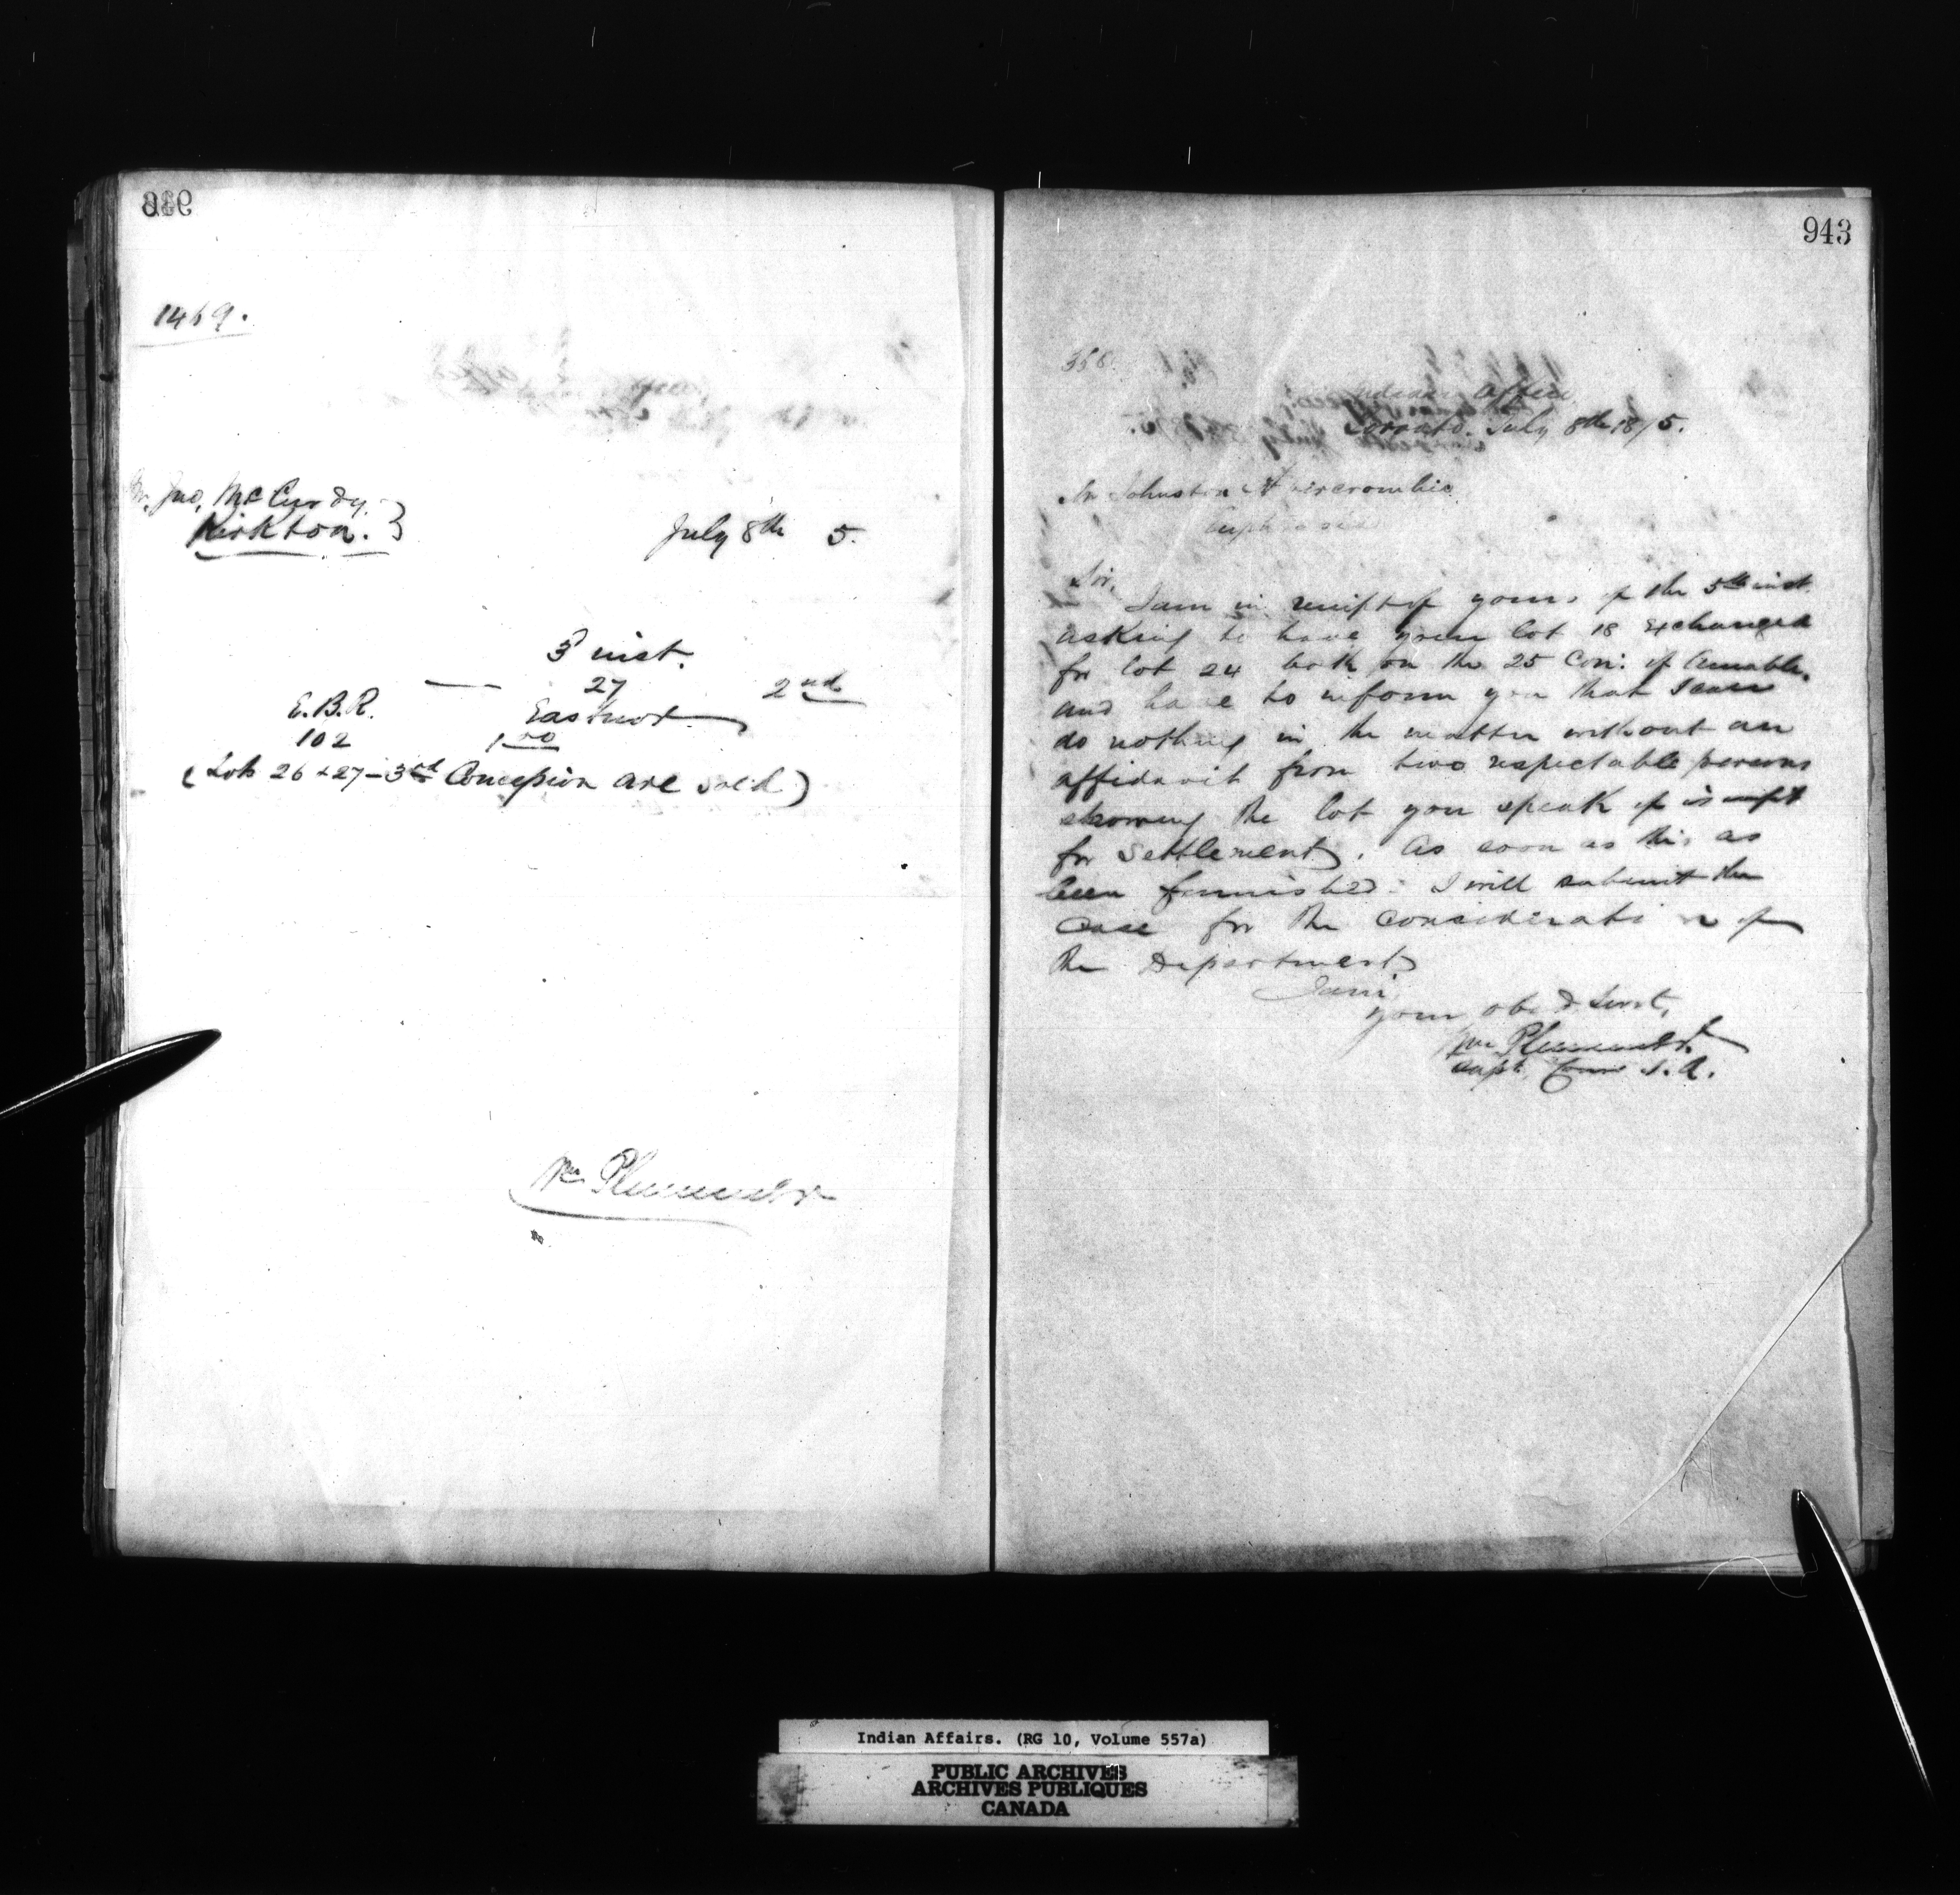 939
1469.
Mr. Jno, McCurdy.
Kirkton.
July 8th 5.
3d inst.
27 2nd
E.B.R. Eastnor
102 1 00
(Lots 26 & 27 - 3rd Concession are sold)
Wm Plummer
943
358.
Indian Office,
Toronto. July 8th 1875.
Mr Johnston Abercrombie
Euphrasia
Sir,
I am in receipt of yours of the 5th inst.
asking to have your lot 18 exchanged
for lot 24 both on the 25 Con: of Amabel,
and have to inform you that I can
do nothing in the matter without an
affidavit from two respectable persons
showing the lot you speak of is unfit
for Settlement. As soon as this as
been furnished I will submit the
Case for the Consideration of
the Department
I am
your obed Servt,
Wm Plummer
Supt. Comr I.A.
Indian Affairs. (RG 10, Volume 557a)
PUBLIC ARCHIVES
ARCHIVES PUBLIQUES
CANADA